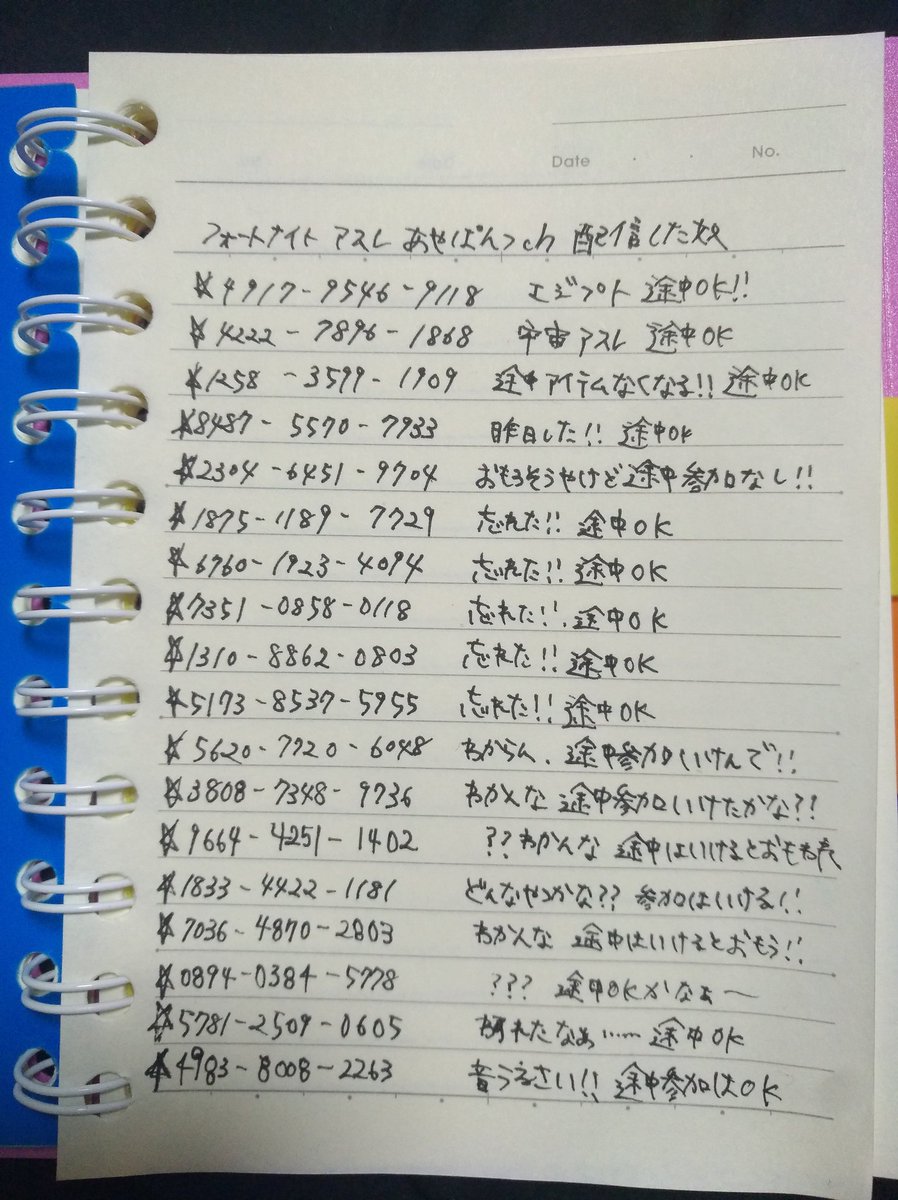 Date . . No.
フォートナイト アスレ あやぱんつch 配信した奴
☆4917-9546-9118 エジプト 途中OK!!
☆4222-7896-1868 宇宙アスレ 途中OK
☆1258-3599-1909 途中アイテムなくなる!! 途中OK
☆8487-5570-7933 昨日した!! 途中OK
☆2304-6451-9704 おもろそうやけど途中参加なし!!
☆1875-1189-7729 忘れた!! 途中OK
☆6960-1923-4094 忘れた!! 途中OK
☆7351-0858-0118 忘れた!!. 途中OK
☆1310-8862-0803 忘れた!! 途中OK
☆5173-8537-5955 忘れた!! 途中OK
☆5620-7720-6048 わからん、途中参加いけんで!!
☆3808-7348-9736 わかんな 途中参加いけたかな??
☆9664-4251-1402 ??わかんな 途中はいけるとおもわれ
☆1833-4422-1181 どんなやつかな?? 参加はいける!!
☆7036-4870-2803 わかんな 途中はいけるとおもう!!
☆0894-0384-5778 ??? 途中OKかなぁ〜
☆5781-2509-0605 なぁ…… 途中OK
☆4983-8008-2263 音うるさい!! 途中参加はOK